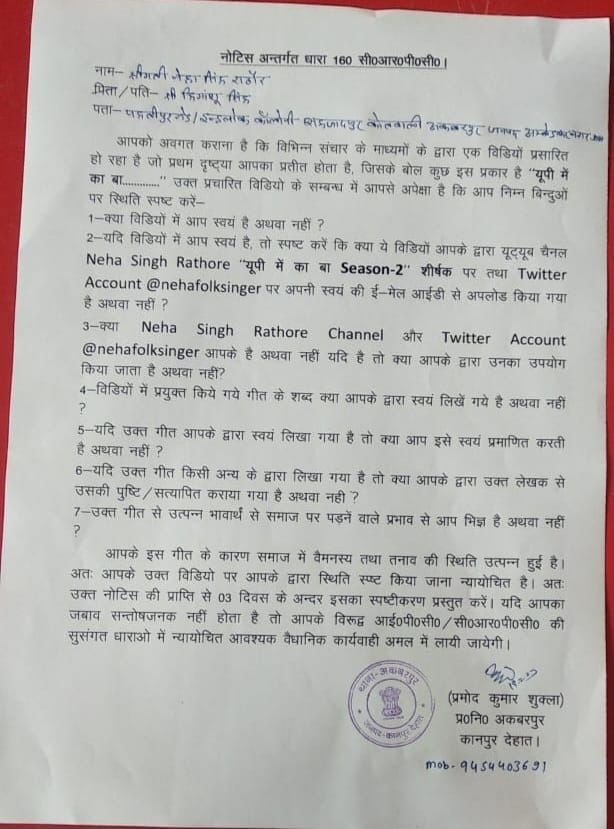 नोटिस अन्तर्गत धारा 160 सी0आर0पी0सी0।
नाम– श्रीमती नेहा सिंह राठौर
पिता/पति– श्री हिमांशू सिंह
पता– कॉलोनी कोतवाली अकबरपुर जनपद अम्बेडकरनगर
आपको अवगत कराना है कि विभिन्न संचार के माध्यमों के द्वारा एक विडियों प्रसारित
हो रहा है जो प्रथम दृष्टया आपका प्रतीत होता है, जिसके बोल कुछ इस प्रकार है "यूपी में
का बा............." उक्त प्रचारित विडियो के सम्बन्ध में आपसे अपेक्षा है कि आप निम्न बिन्दुओं
पर स्थिति स्पष्ट करें–
1–क्या विडियों में आप स्वयं है अथवा नहीं ?
2–यदि विडियों में आप स्वयं है, तो स्पष्ट करें कि क्या ये विडियों आपके द्वारा यूट्यूब चैनल
Neha Singh Rathore "यूपी में का बा Season-2" शीर्षक पर तथा Twitter
Account @nehafolksinger पर अपनी स्वयं की ई–मेल आईडी से अपलोड किया गया
है अथवा नहीं ?
3–क्या Neha Singh Rathore Channel और Twitter Account
@nehafolksinger आपके है अथवा नहीं यदि है तो क्या आपके द्वारा उनका उपयोग
किया जाता है अथवा नहीं?
4–विडियों में प्रयुक्त किये गये गीत के शब्द क्या आपके द्वारा स्वयं लिखें गये है अथवा नहीं
?
5–यदि उक्त गीत आपके द्वारा स्वयं लिखा गया है तो क्या आप इसे स्वयं प्रमाणित करती
है अथवा नहीं ?
6–यदि उक्त गीत किसी अन्य के द्वारा लिखा गया है तो क्या आपके द्वारा उक्त लेखक से
उसकी पुष्टि/सत्यापित कराया गया है अथवा नही ?
7–उक्त गीत से उत्पन्न भावार्थ से समाज पर पड़नें वाले प्रभाव से आप भिज्ञ है अथवा नहीं
?
आपके इस गीत के कारण समाज में वैमनस्य तथा तनाव की स्थिति उत्पन्न हुई है।
अतः आपके उक्त विडियो पर आपके द्वारा स्थिति स्प्ष्ट किया जाना न्यायोचित है। अतः
उक्त नोटिस की प्राप्ति से 03 दिवस के अन्दर इसका स्पष्टीकरण प्रस्तुत करें। यदि आपका
जबाव सन्तोषजनक नहीं होता है तो आपके विरूद्व आई0पी0सी0/सी0आर0पी0सी0 की
सुसंगत धाराओ में न्यायोचित आवश्यक वैधानिक कार्यवाही अमल में लायी जायेगी।
थाना–अकबरपुर
जनपद–कानपुर देहात
(प्रमोद कुमार शुक्ला)
प्र0नि0 अकबरपुर
कानपुर देहात।
mob- 9454403691